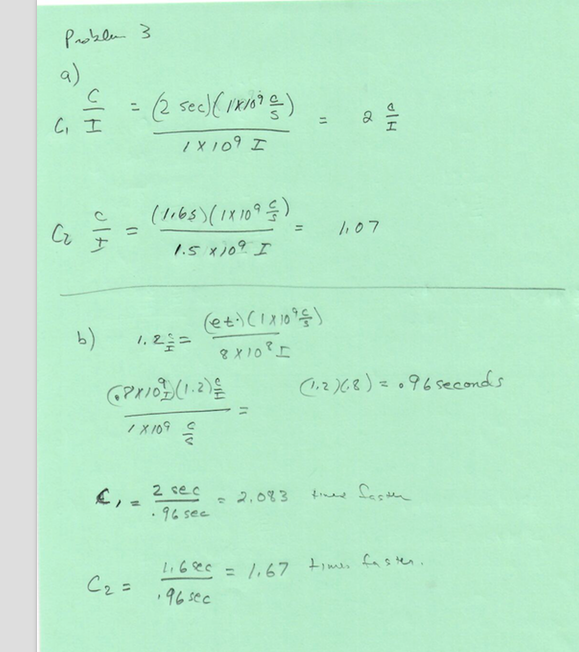 Problem 3
a)
C₁ C/I = (2 sec)(1x10⁹ C/S) / 1 x 10⁹ I = 2 C/I
C₂ C/I = (1.6s)(1x10⁹ C/S) / 1.5 x10⁹ I = 1.07
b) 1.2 C/I = (et.)(1x10⁹ C/S) / 8x10⁸ I
(.8x10⁹ I)(1.2) C/I / 1x10⁹ C/S = (1.2)(.8) = .96 seconds
C₁ = 2 sec / .96 sec = 2.083 times faster
C₂ = 1.6 sec / .96 sec = 1.67 times faster.